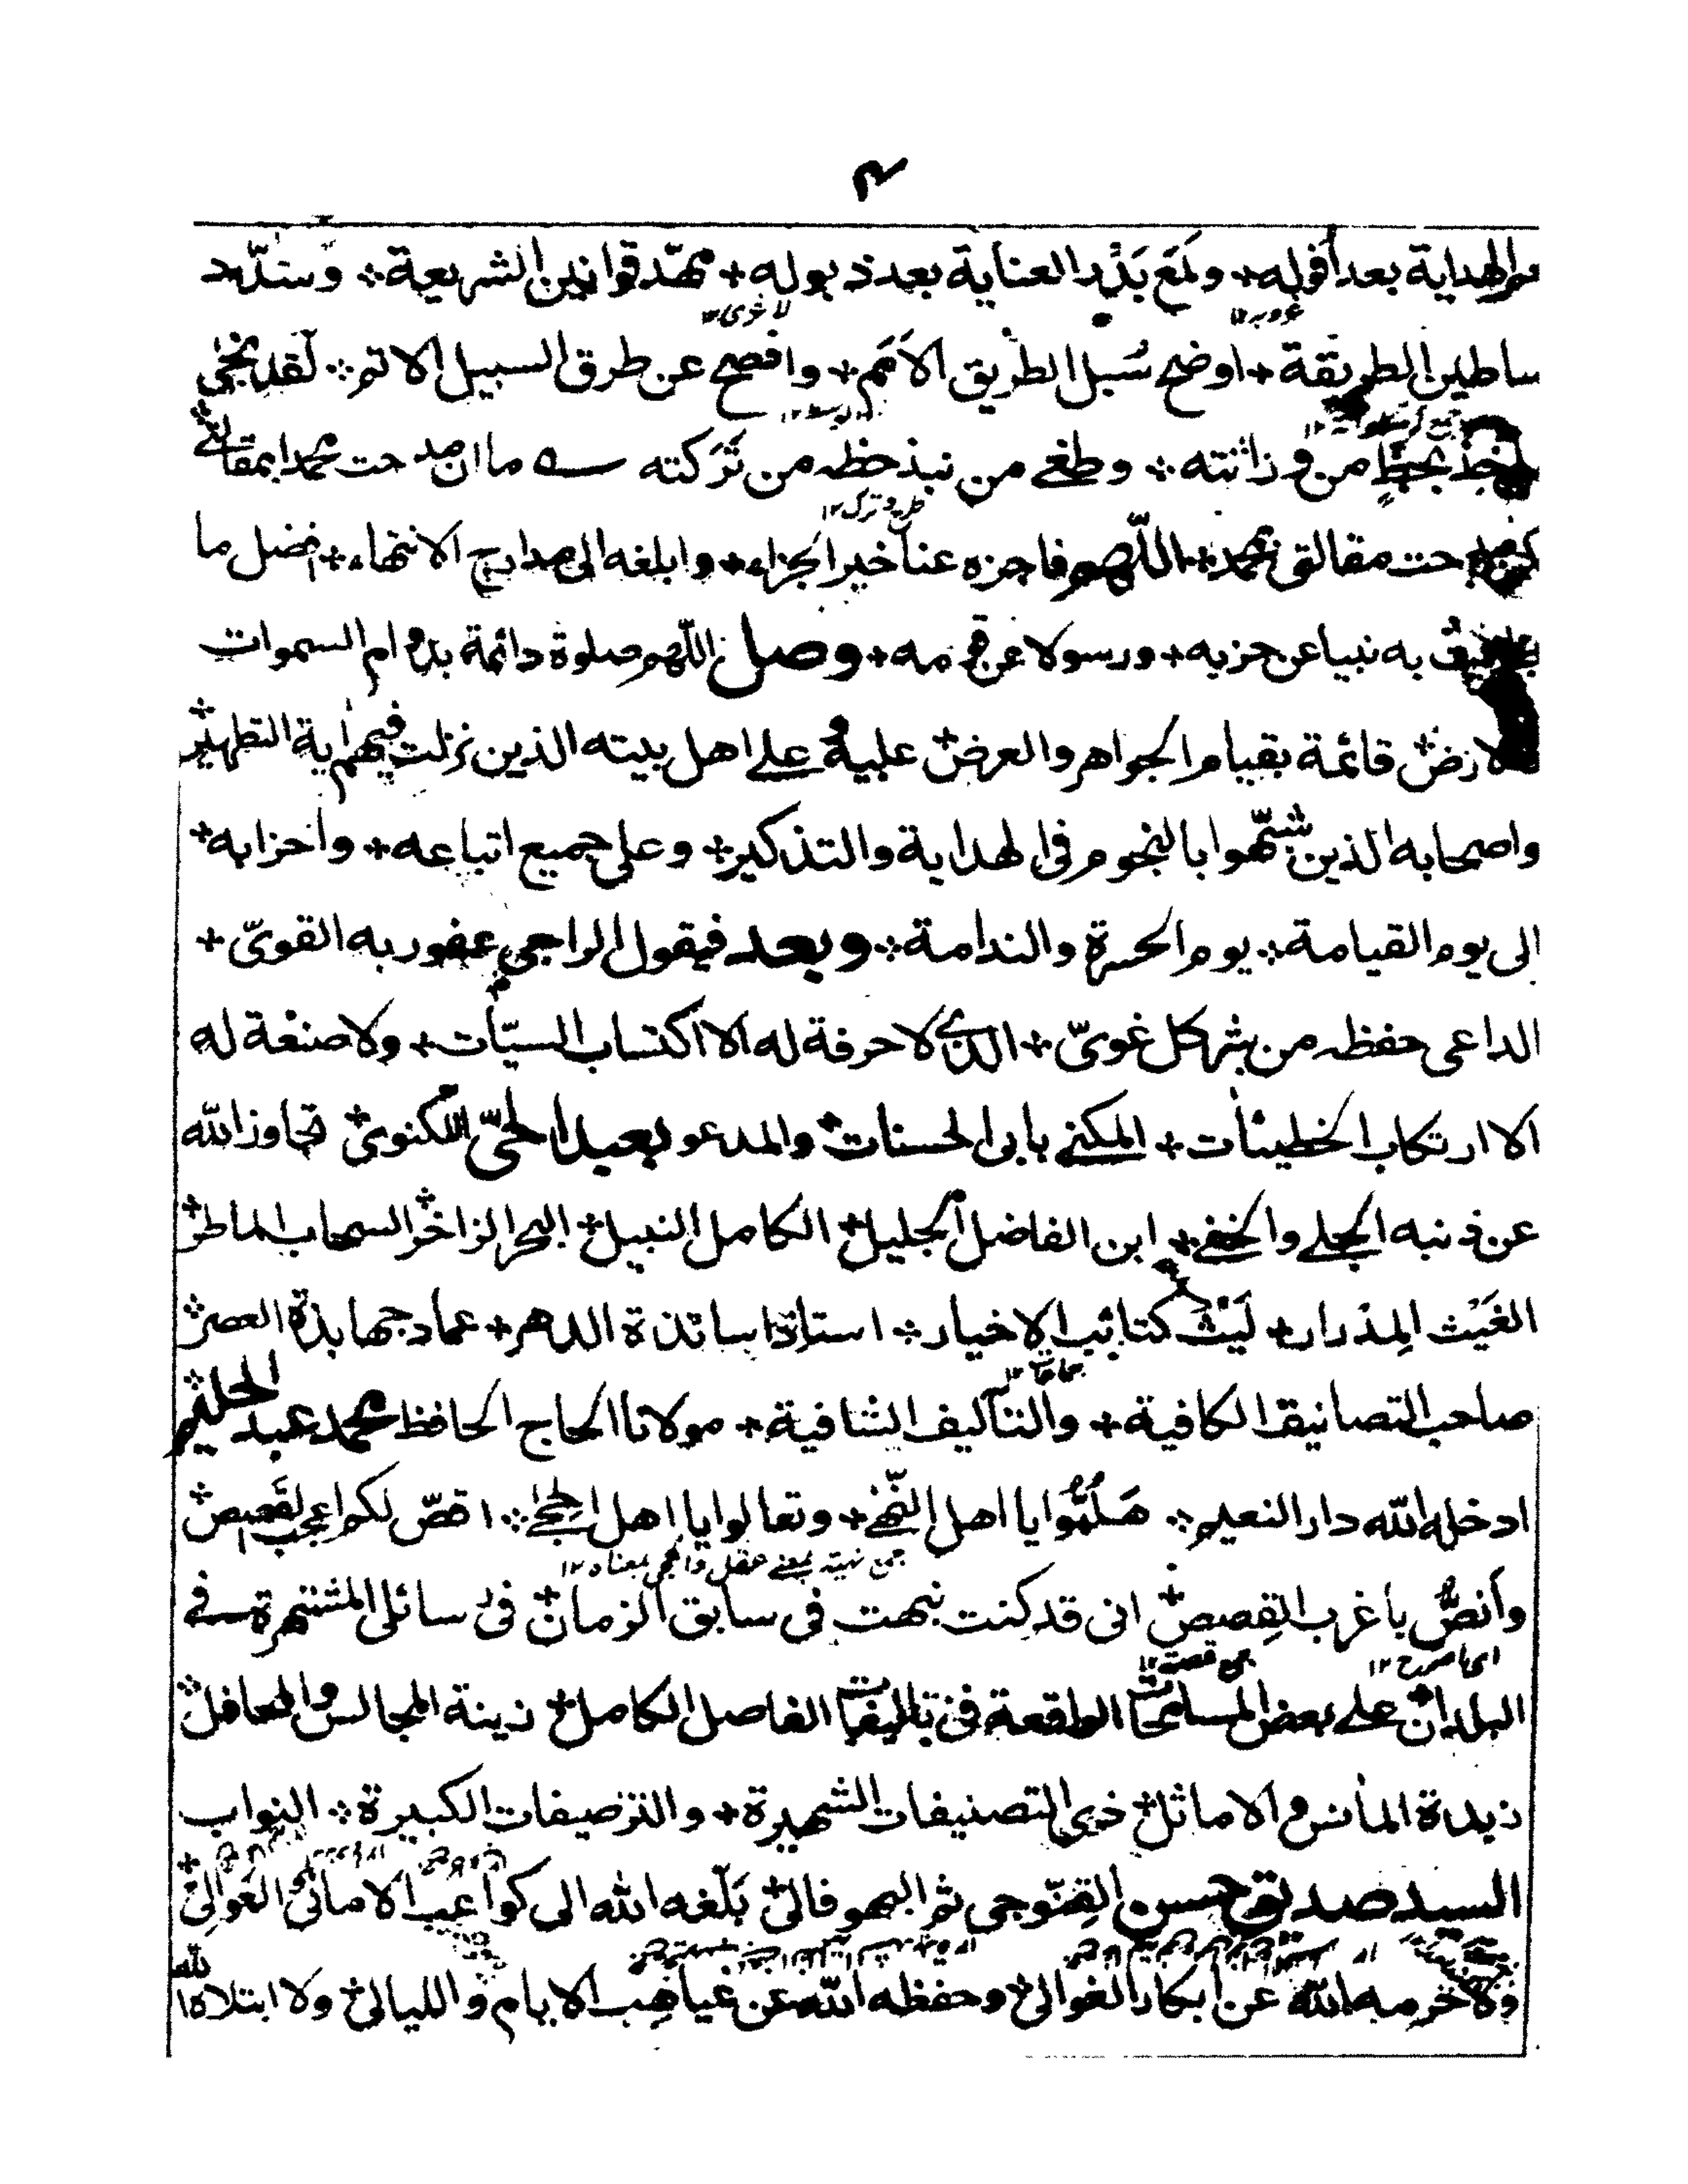 الهداية بعد أفوله + ولمع بَدْر العناية بعد ذبوله + مهّد قوانين الشريعة + وسدّد
غروبه ١٢ لاغرى ١٢
ساطين الطريقة + اوضح سُبل الطريق الاَمَم + وافصح عن طرق السبيل الاتم + لقد نجى
من وزانته + وطغے من نبذ حظه من تَرَكته ے ما ان مدحت محمدا بمقالتے
طرح وترك ١٢
مدحت مقالتى بمحمد + اللّٰهم فاجزه عنا خير الجزاء + وابلغه الى مدارج الانتهاء + افضل ما
به نبيا عن حزبه + ورسولا عن قومه + وصل اللّٰهم صلوة دائمة بدوام السموات
والارض + قائمة بقيام الجواهر والعرض + عليه و علے اهل بيته الذين نزلت فيهم اٰية التطهير +
واصحابه الذين شبّهوا بالنجوم فى الهداية والتذكير + وعلى جميع اتباعه + واحزابه +
الى يوم القيامة + يوم الحسرة والندامة + وبعد فيقول الراجى عفو ربه القوىّ +
الداعى حفظه من شر كل غوىّ + الذى لا حرفة له الا اكتساب السيّاٰت + ولا صنعة له
الا ارتكاب الخطيئات + المكنے بابى الحسنات + والمدعو بعبد الحىّ اللكنوى + تجاوز الله
عن ذنبه الجلے والخفے + ابن الفاضل الجليل + الكامل النبيل + البحر الزاخر + السحاب الماطر +
الغَيْث المِدْرار + لَيْث كتائب الاخيار + استاذ اساتذة الدهر + عماد جهابذة العصر +
جماعات ١٢
صاحب التصانيف الكافية + والتاٰليف الشافية + مولانا الحاج الحافظ محمد عبد الحليم +
ادخله الله دار النعيم + هَلُمُّوا يا اهل النُّهے + وتعالوا يا اهل الحِجے + اقصّ لكم اعجب القَصص +
جمع نهية بمعنے عقل والحجى بمعناه ١٢
وأنصُّ باغرب القِصص + انى قد كنت نبهت فى سابق الزمان + فى رسائلى المشتهرة فے
اى اصرح ١٢ جمع قصة ١٢
البلدان + علے بعض المسامحات الواقعة فى تاليفات الفاضل الكامل + زينة المجالس والمحافل +
زبدة الماٰنس والاماثل + ذى التصنيفات الشهيرة + والترصيفات الكبيرة + النواب
السيد صديق حسن القِنّوجى ثم البهوفالى + بَلّغه الله الى كواعب الامانى الغَوالى +
ولا حرمه الله عن ابكار الغوالى + وحفظه الله عن غياهِب الايام و الليالى + ولا ابتلاه الله